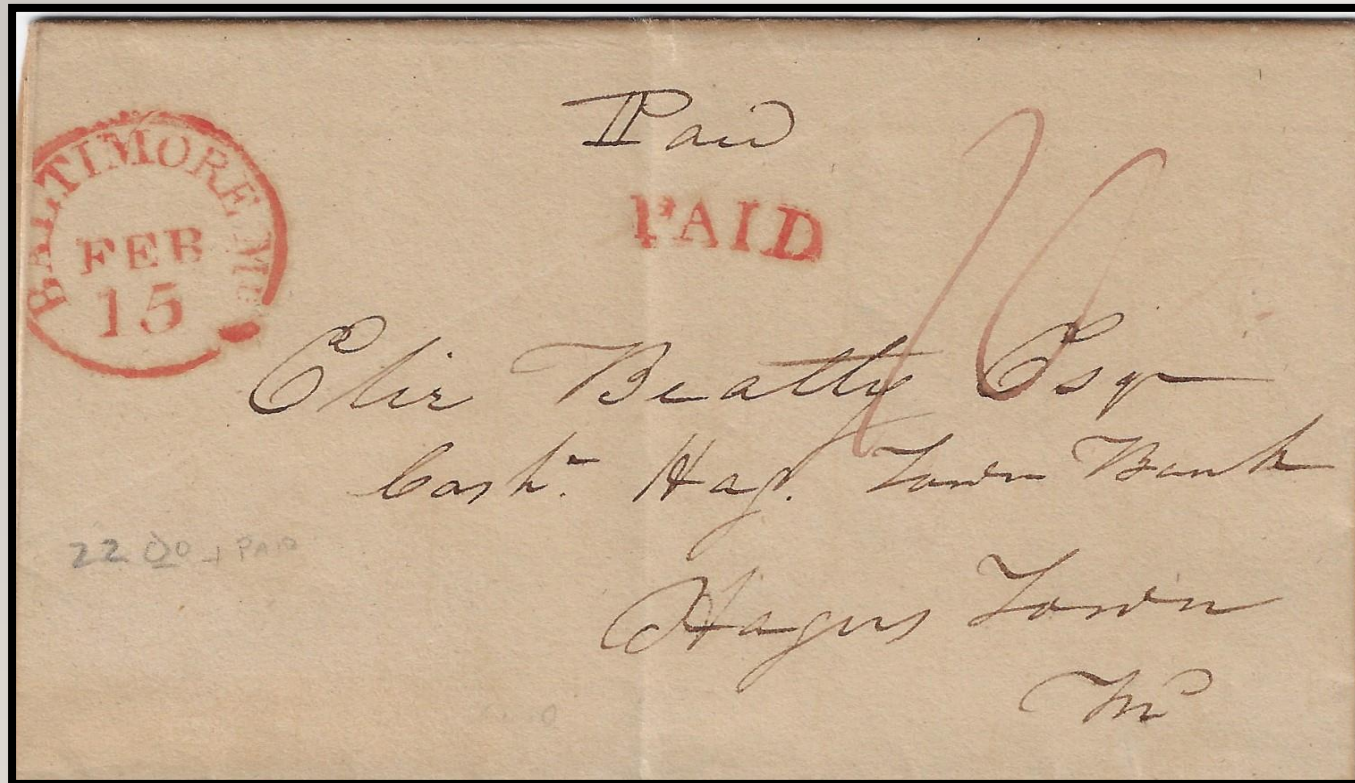 BALTIMORE Md
FEB
15
Paid
PAID
10
Elie Beatty Esqr
Cashr. Hag. Town Bank
Hagers Town
Md
22 00 + PAID